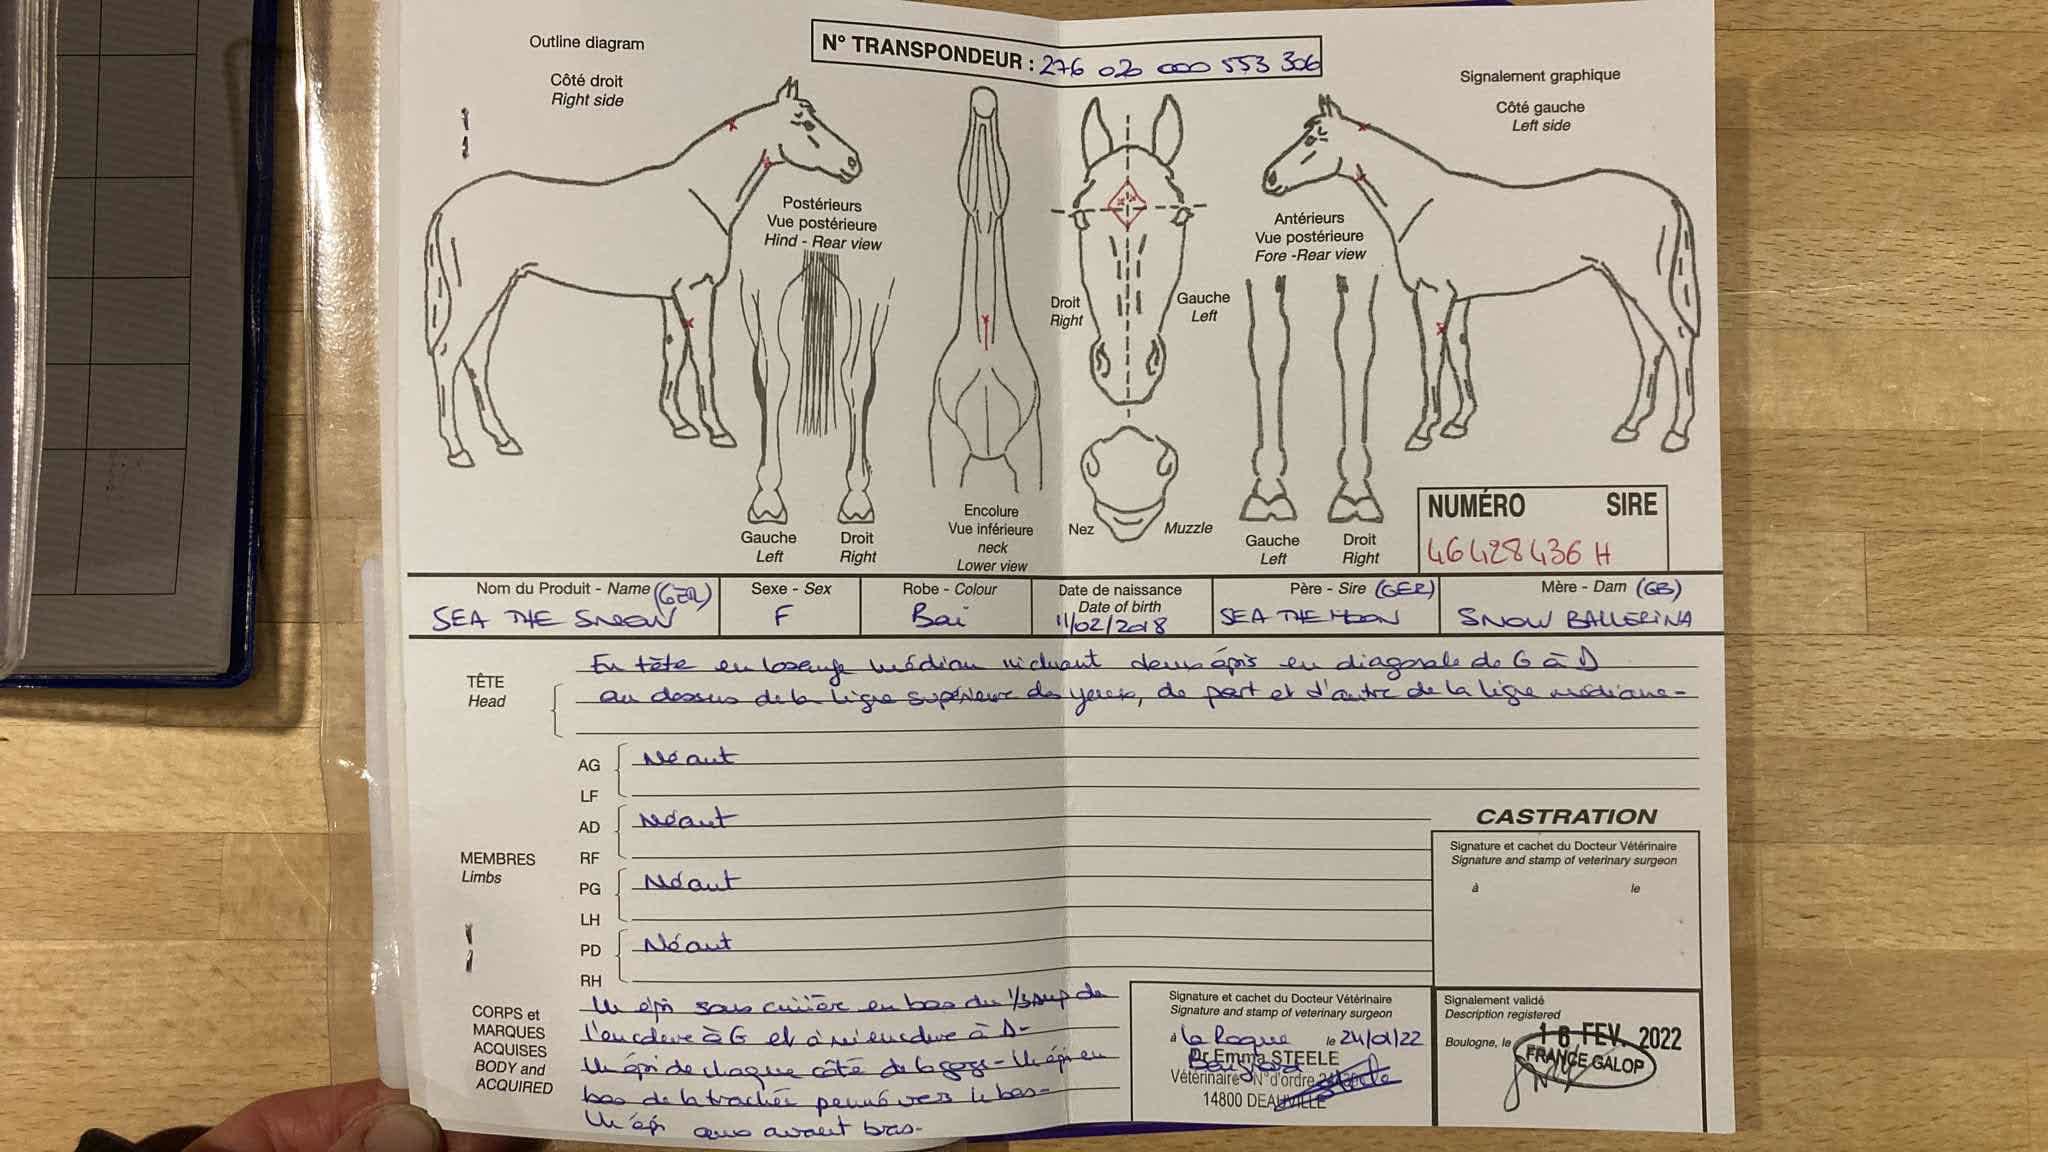 Outline diagram
N° TRANSPONDEUR : 276 020 000 553 306
Signalement graphique
Côté droit
Right side
Côté gauche
Left side
Postérieurs
Vue postérieure
Hind - Rear view
Antérieurs
Vue postérieure
Fore -Rear view
Droit
Right
Gauche
Left
Gauche
Left
Droit
Right
Encolure
Vue inférieure
neck
Lower view
Nez
Muzzle
Gauche
Left
Droit
Right
NUMÉRO SIRE
46428436 H
Nom du Produit - Name (GER)
SEA THE SNOW
Sexe - Sex
F
Robe - Colour
Bai
Date de naissance
Date of birth
11/02/2018
Père - Sire (GER)
SEA THE MOON
Mère - Dam (GB)
SNOW BALLERINA
TÊTE
Head
En tête en losange médian incluant deux épis en diagonale de G à D
au dessus de la ligne supérieure des yeux, de part et d'autre de la ligne médiane-
MEMBRES
Limbs
AG
LF
Néant
AD
RF
Néant
PG
LH
Néant
PD
RH
Néant
CASTRATION
Signature et cachet du Docteur Vétérinaire
Signature and stamp of veterinary surgeon
à le
CORPS et
MARQUES
ACQUISES
BODY and
ACQUIRED
Un épi sous crinière en bas du 1/3 sup de
l'encolure à G et à mi encolure à D-
Un épi de chaque côté de la gorge- Un épi en
bas de la trachée penné vers le bas-
Un épi aux avant bras-
Signature et cachet du Docteur Vétérinaire
Signature and stamp of veterinary surgeon
à La Roque le 24/01/22
Dr Emma STEELE
Vétérinaire N° d'ordre
14800 DEAUVILLE
Signalement validé
Description registered
Boulogne, le 16 FEV. 2022
FRANCE GALOP